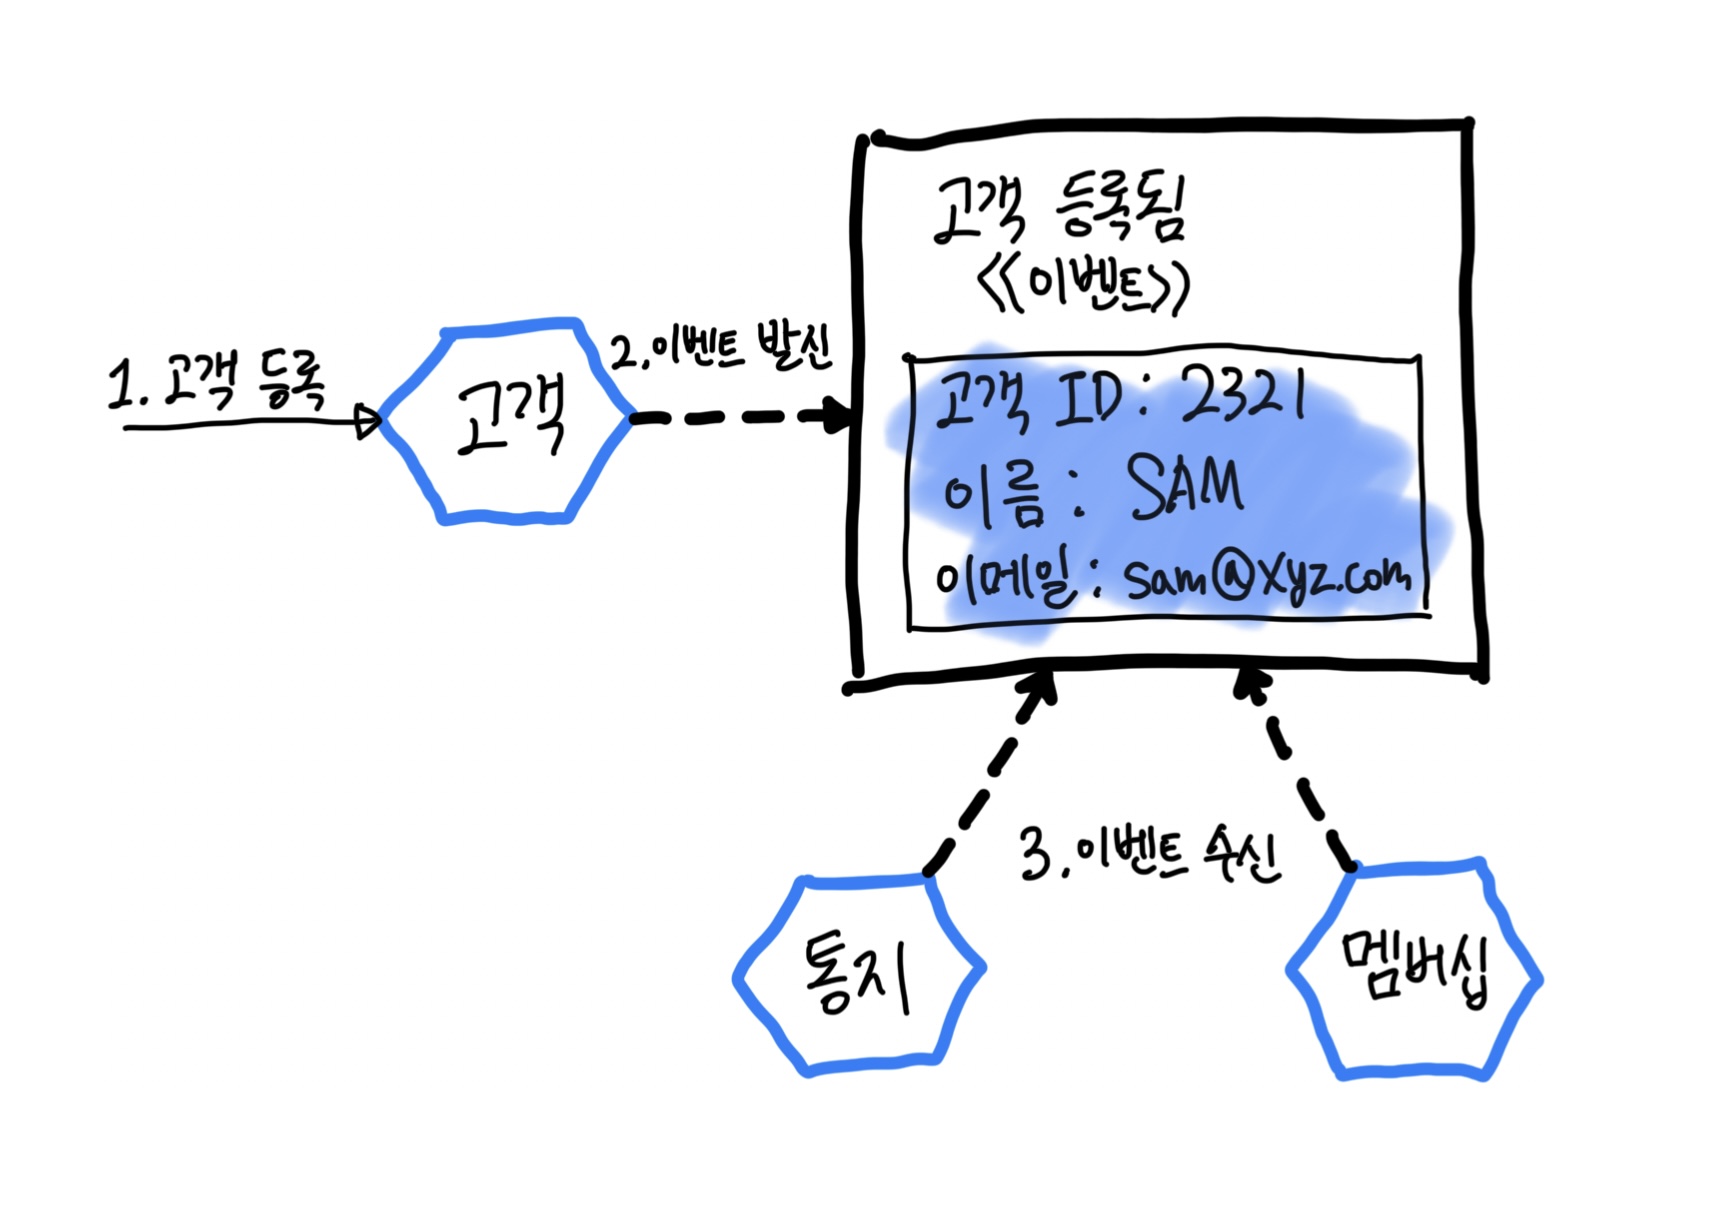 1. 고객 등록
고객
2. 이벤트 발신
고객 등록됨
<<이벤트>>
고객 ID: 2321
이름: SAM
이메일: sam@xyz.com
3. 이벤트 수신
통지
멤버십